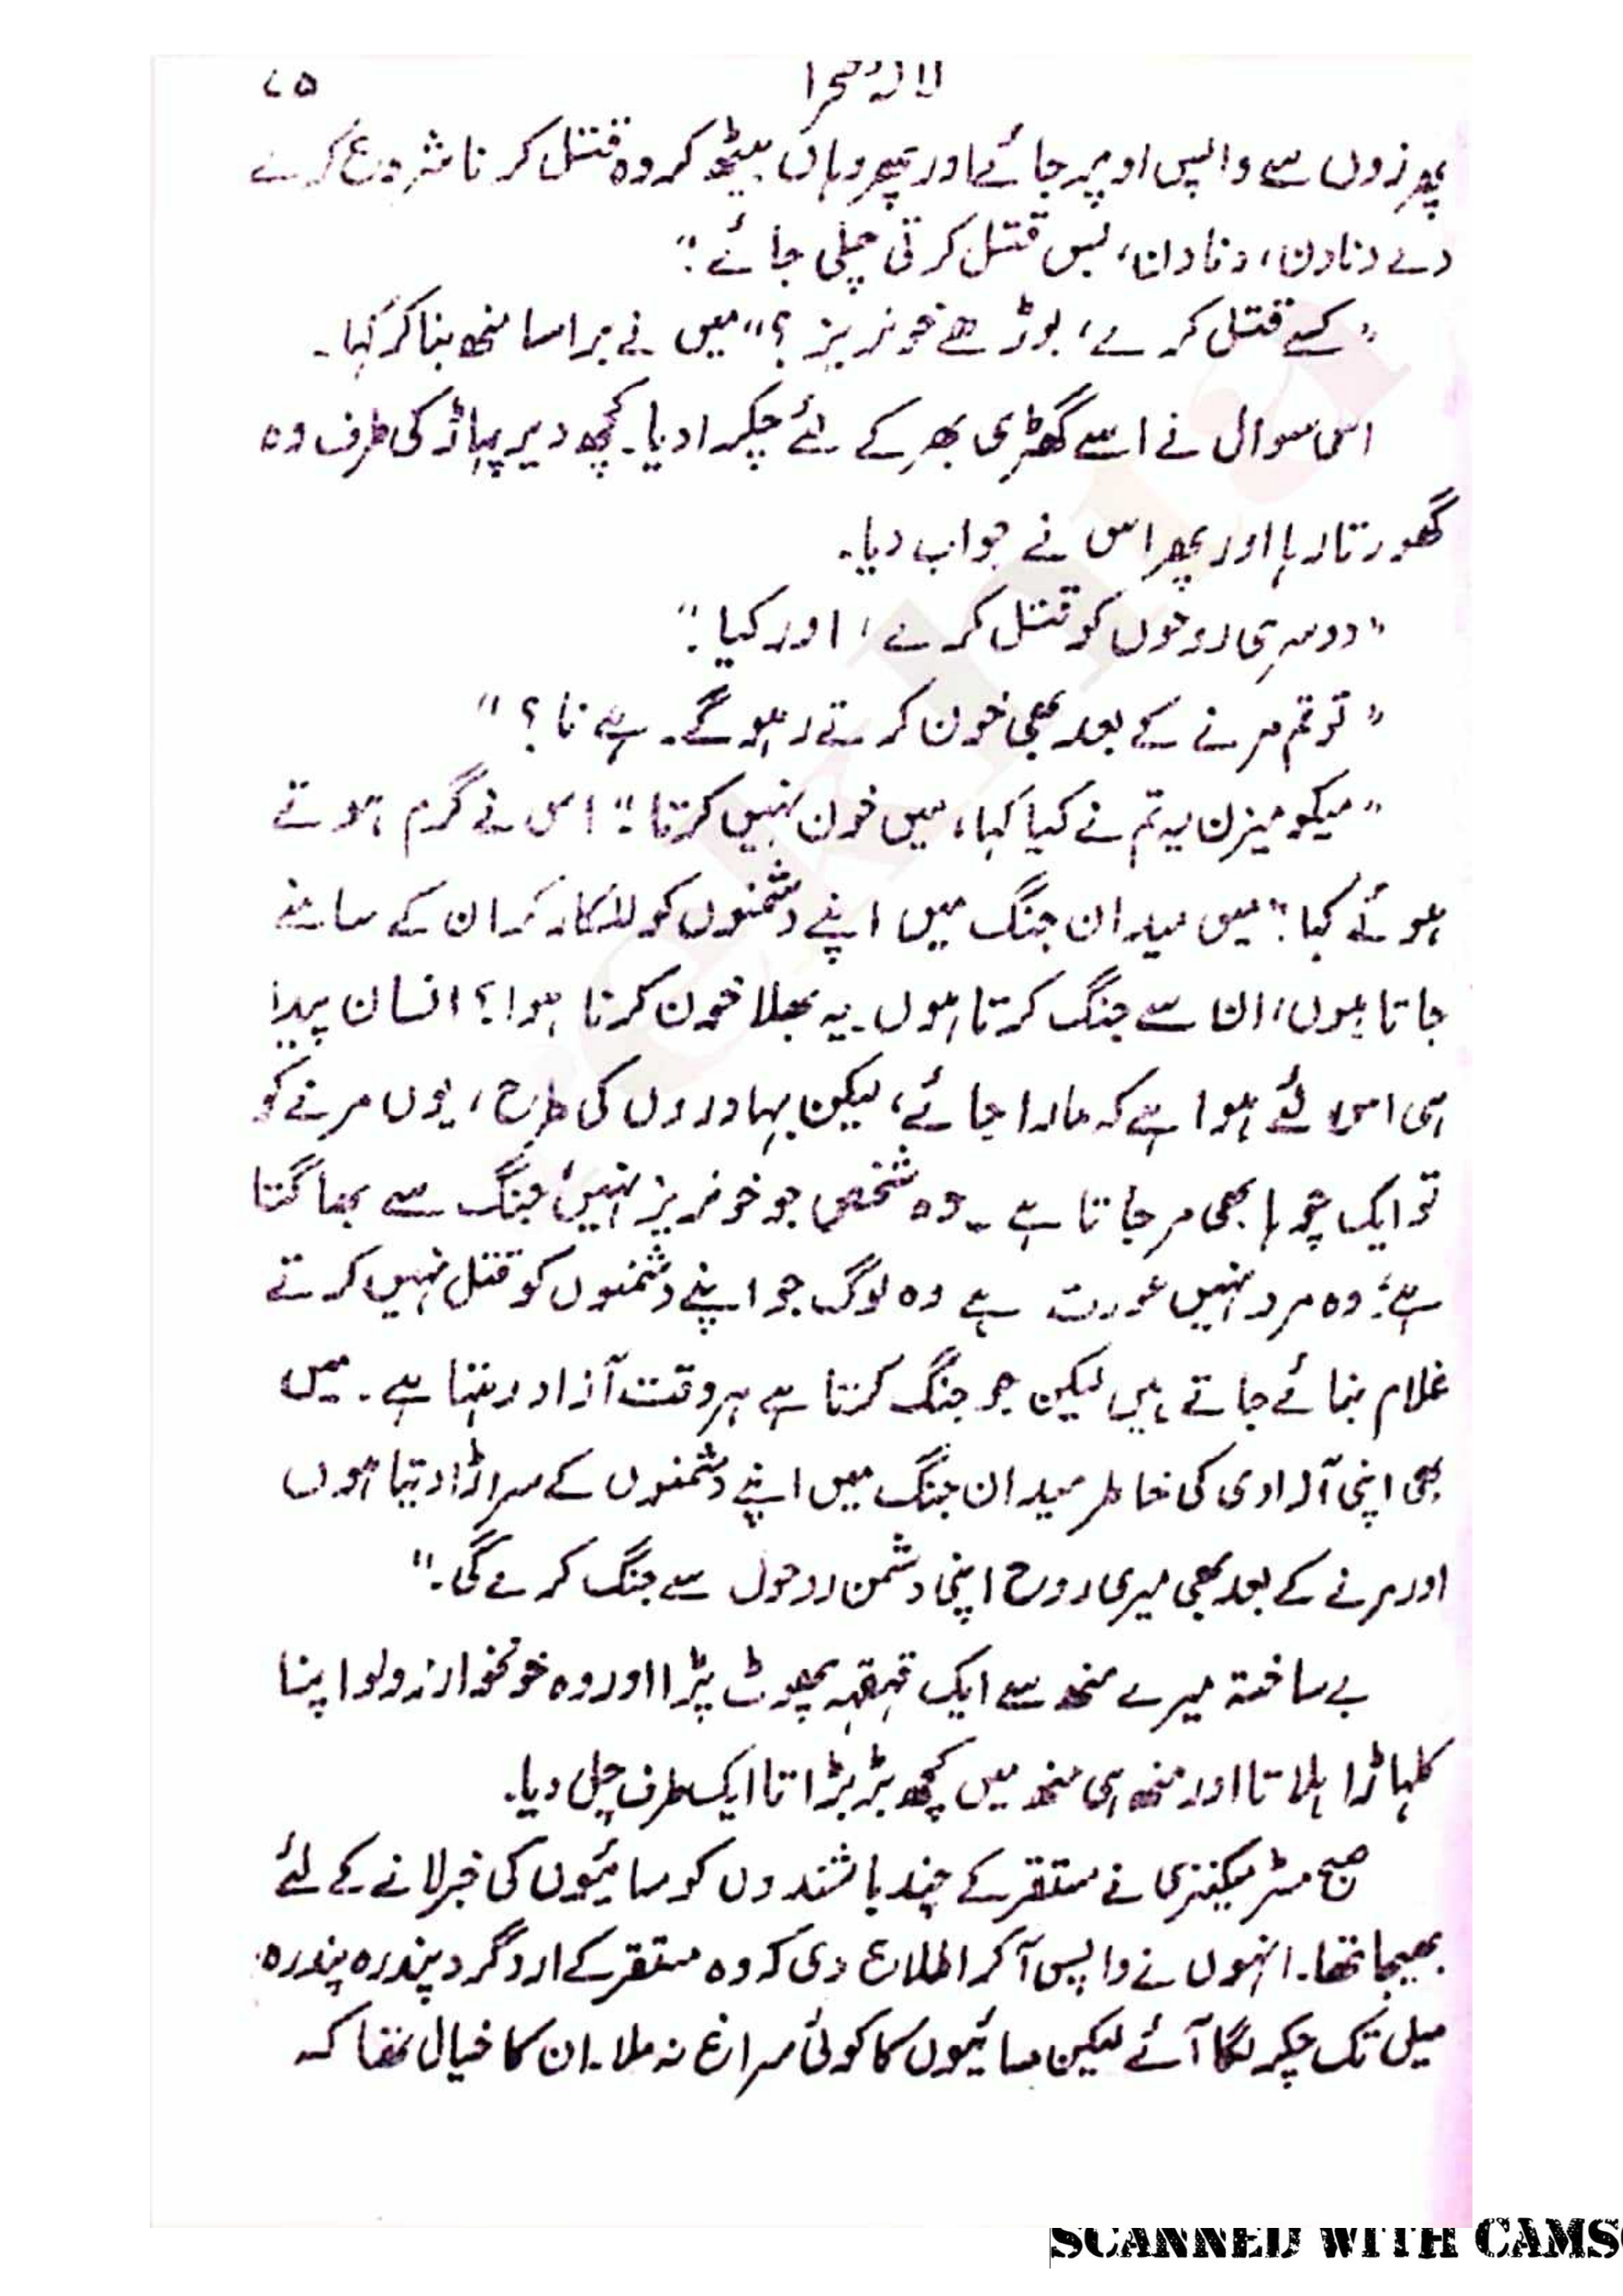 لالہ صحرا ۷۵
پھر زوں سے واپس اوپر جائے اور پھر وہاں بیٹھ کر وہ قتل کرنا شروع کر ے
دے دنادن، دنادان، بس قتل کرتی چلی جائے؛"
"کسے قتل کرے، بوڑھے خونریز؟" میں نے برا سا منھ بنا کر کہا۔
اس سوال نے اسے گھڑی بھر کے لئے چکرا دیا۔ کچھ دیر پہاڑ کی طرف وہ
گھورتا رہا اور پھر اس نے جواب دیا۔
"دوسری روحوں کو قتل کرے، اور کیا؛"
"تو تم مرنے کے بعد بھی خون کرتے رہو گے۔ ہے نا؟"
"میکومیزن یہ تم نے کیا کہا، میں خون نہیں کرتا؛" اس نے گرم ہوتے
ہوئے کہا: "میں میدان جنگ میں اپنے دشمنوں کو للکار کر ان کے سامنے
جاتا ہوں، ان سے جنگ کرتا ہوں۔ یہ بھلا خون کرنا ہوا؟ انسان پیدا
ہی اس لئے ہوا ہے کہ مارا جائے، لیکن بہادروں کی طرح، یوں مرنے کو
تو ایک چوہا بھی مر جاتا ہے۔ وہ شخص جو خونریز نہیں، جنگ سے بھاگتا
ہے؛ وہ مرد نہیں عورت ہے وہ لوگ جو اپنے دشمنوں کو قتل نہیں کرتے
غلام بنائے جاتے ہیں لیکن جو جنگ کرتا ہے ہر وقت آزاد رہتا ہے۔ میں
بھی اپنی آزادی کی خاطر میدان جنگ میں اپنے دشمنوں کے سر اڑا دیتا ہوں
اور مرنے کے بعد بھی میری روح اپنی دشمن روحوں سے جنگ کرے گی۔"
بے ساختہ میرے منھ سے ایک قہقہہ پھوٹ پڑا اور وہ خونخوار زولو اپنا
کلہاڑا ہلاتا اور منھ ہی منھ میں کچھ بڑبڑاتا ایک طرف چل دیا۔
صبح مسٹر میکنزی نے مستقر کے چند باشندوں کو مسائیوں کی خبر لانے کے لئے
بھیجا تھا۔ انہوں نے واپس آ کر اطلاع دی کہ وہ مستقر کے ارد گرد پندرہ پندرہ
میل تک چکر لگا آئے لیکن مسائیوں کا کوئی سراغ نہ ملا۔ ان کا خیال تھا کہ
SCANNED WITH CAMS